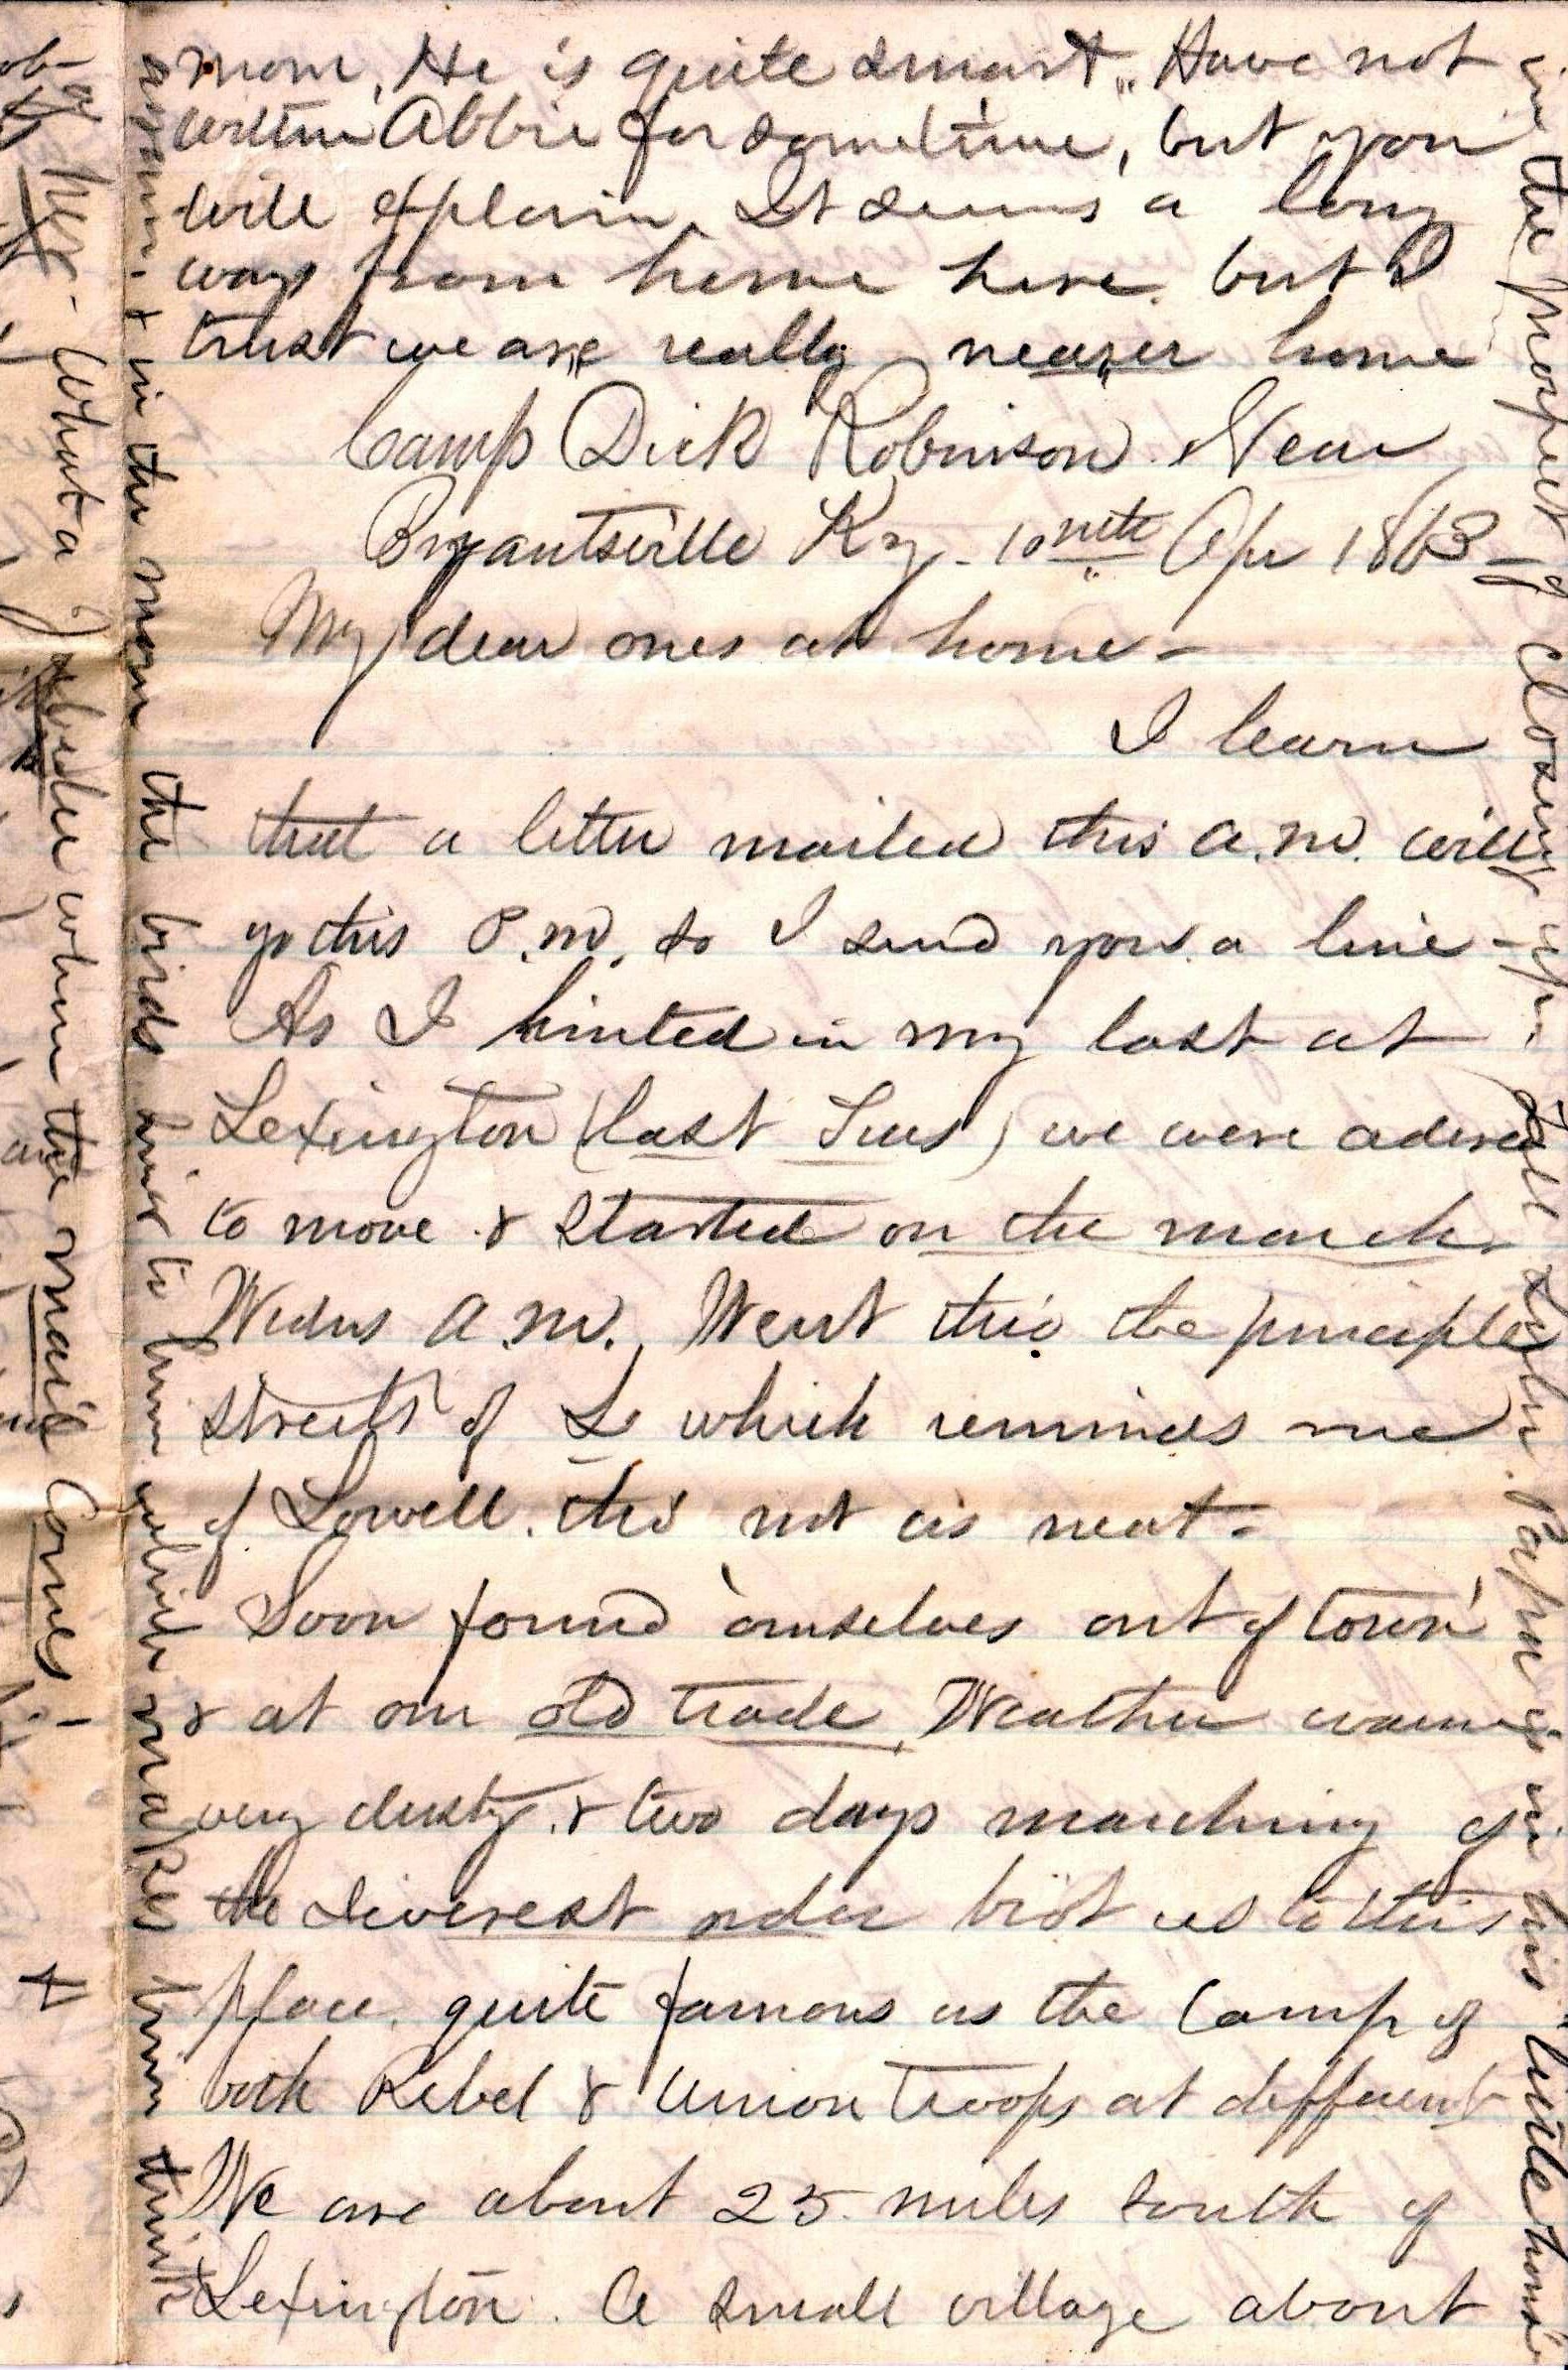 morn, He is quite smart,, Have not
written Abbie for sometime, but you
will explain. It seems a long
ways from home here. but I
trust we are really nearer home
Camp Dick Robinson Near
Bryantsville Ky. 10 Apr 1863
My dear ones at home -
I learn
that a letter mailed this a.m. will
go this P.m. so I send you a line -
As I hinted in my last at
Lexington (last Tues) we were
to move & started on the march.
Wedns a.m. Went thro the principle
streets of L which reminds me
of Lowell. tho' not as neat -
Soon found ourselves out of town
& at our old trade. Weather warm
very dusty. & two days marching of
the severest order bro't us to this
place. quite famous as the Camp of
both Rebel & Union troops at different
We are about 25 miles south of
Lexington. A small village about
& in the morn the birds sing to him which makes him think
in the prospect of closing up. Tell Paper is in his little house
What a when the mail comes -